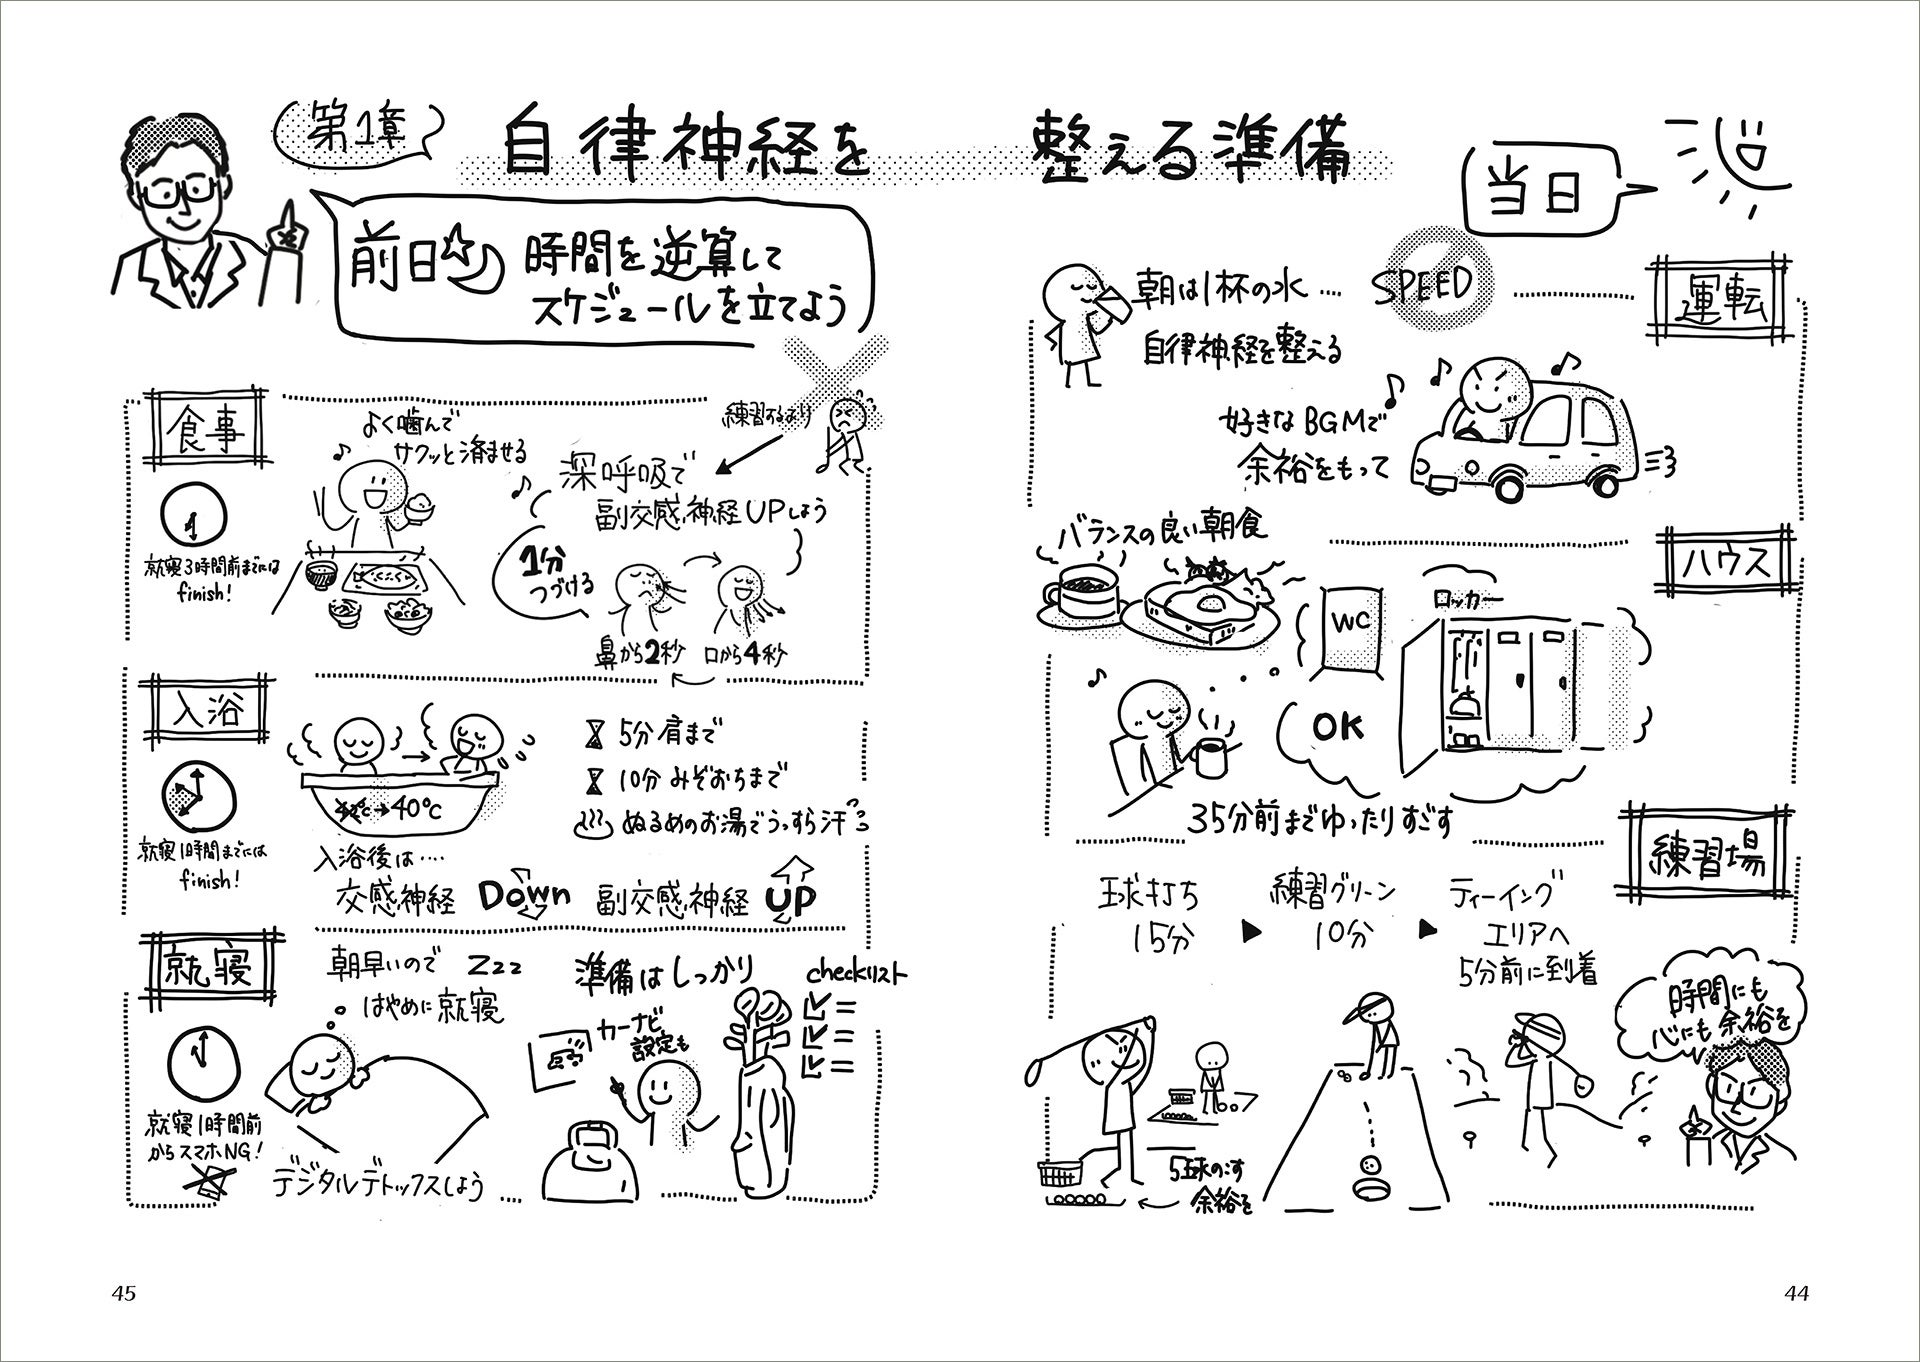 第1章
自律神経を整える準備
前日
時間を逆算して
スケジュールを立てよう
食事
就寝3時間前までには
finish!
よく噛んで
サクッと済ませる
練習するより
深呼吸で
副交感神経UPしよう
1分
つづける
鼻から2秒
口から4秒
入浴
就寝1時間までには
finish!
42℃→40℃
5分肩まで
10分みぞおちまで
ぬるめのお湯でうっすら汗
入浴後は‥‥
交感神経 Down 副交感神経 UP
就寝
就寝1時間前
からスマホNG!
朝早いので
はやめに就寝
zzz
デジタルデトックスしよう
準備はしっかり
カーナビ
設定も
checkリスト
45
当日
朝は1杯の水‥‥
自律神経を整える
SPEED
運転
好きなBGMで
余裕をもって
バランスの良い朝食
ハウス
WC
ロッカー
OK
35分前までゆったりすごす
練習場
球打ち
15分
練習グリーン
10分
ティーイング
エリアへ
5分前に到着
5球のこす
余裕を
時間にも
心にも余裕を
44